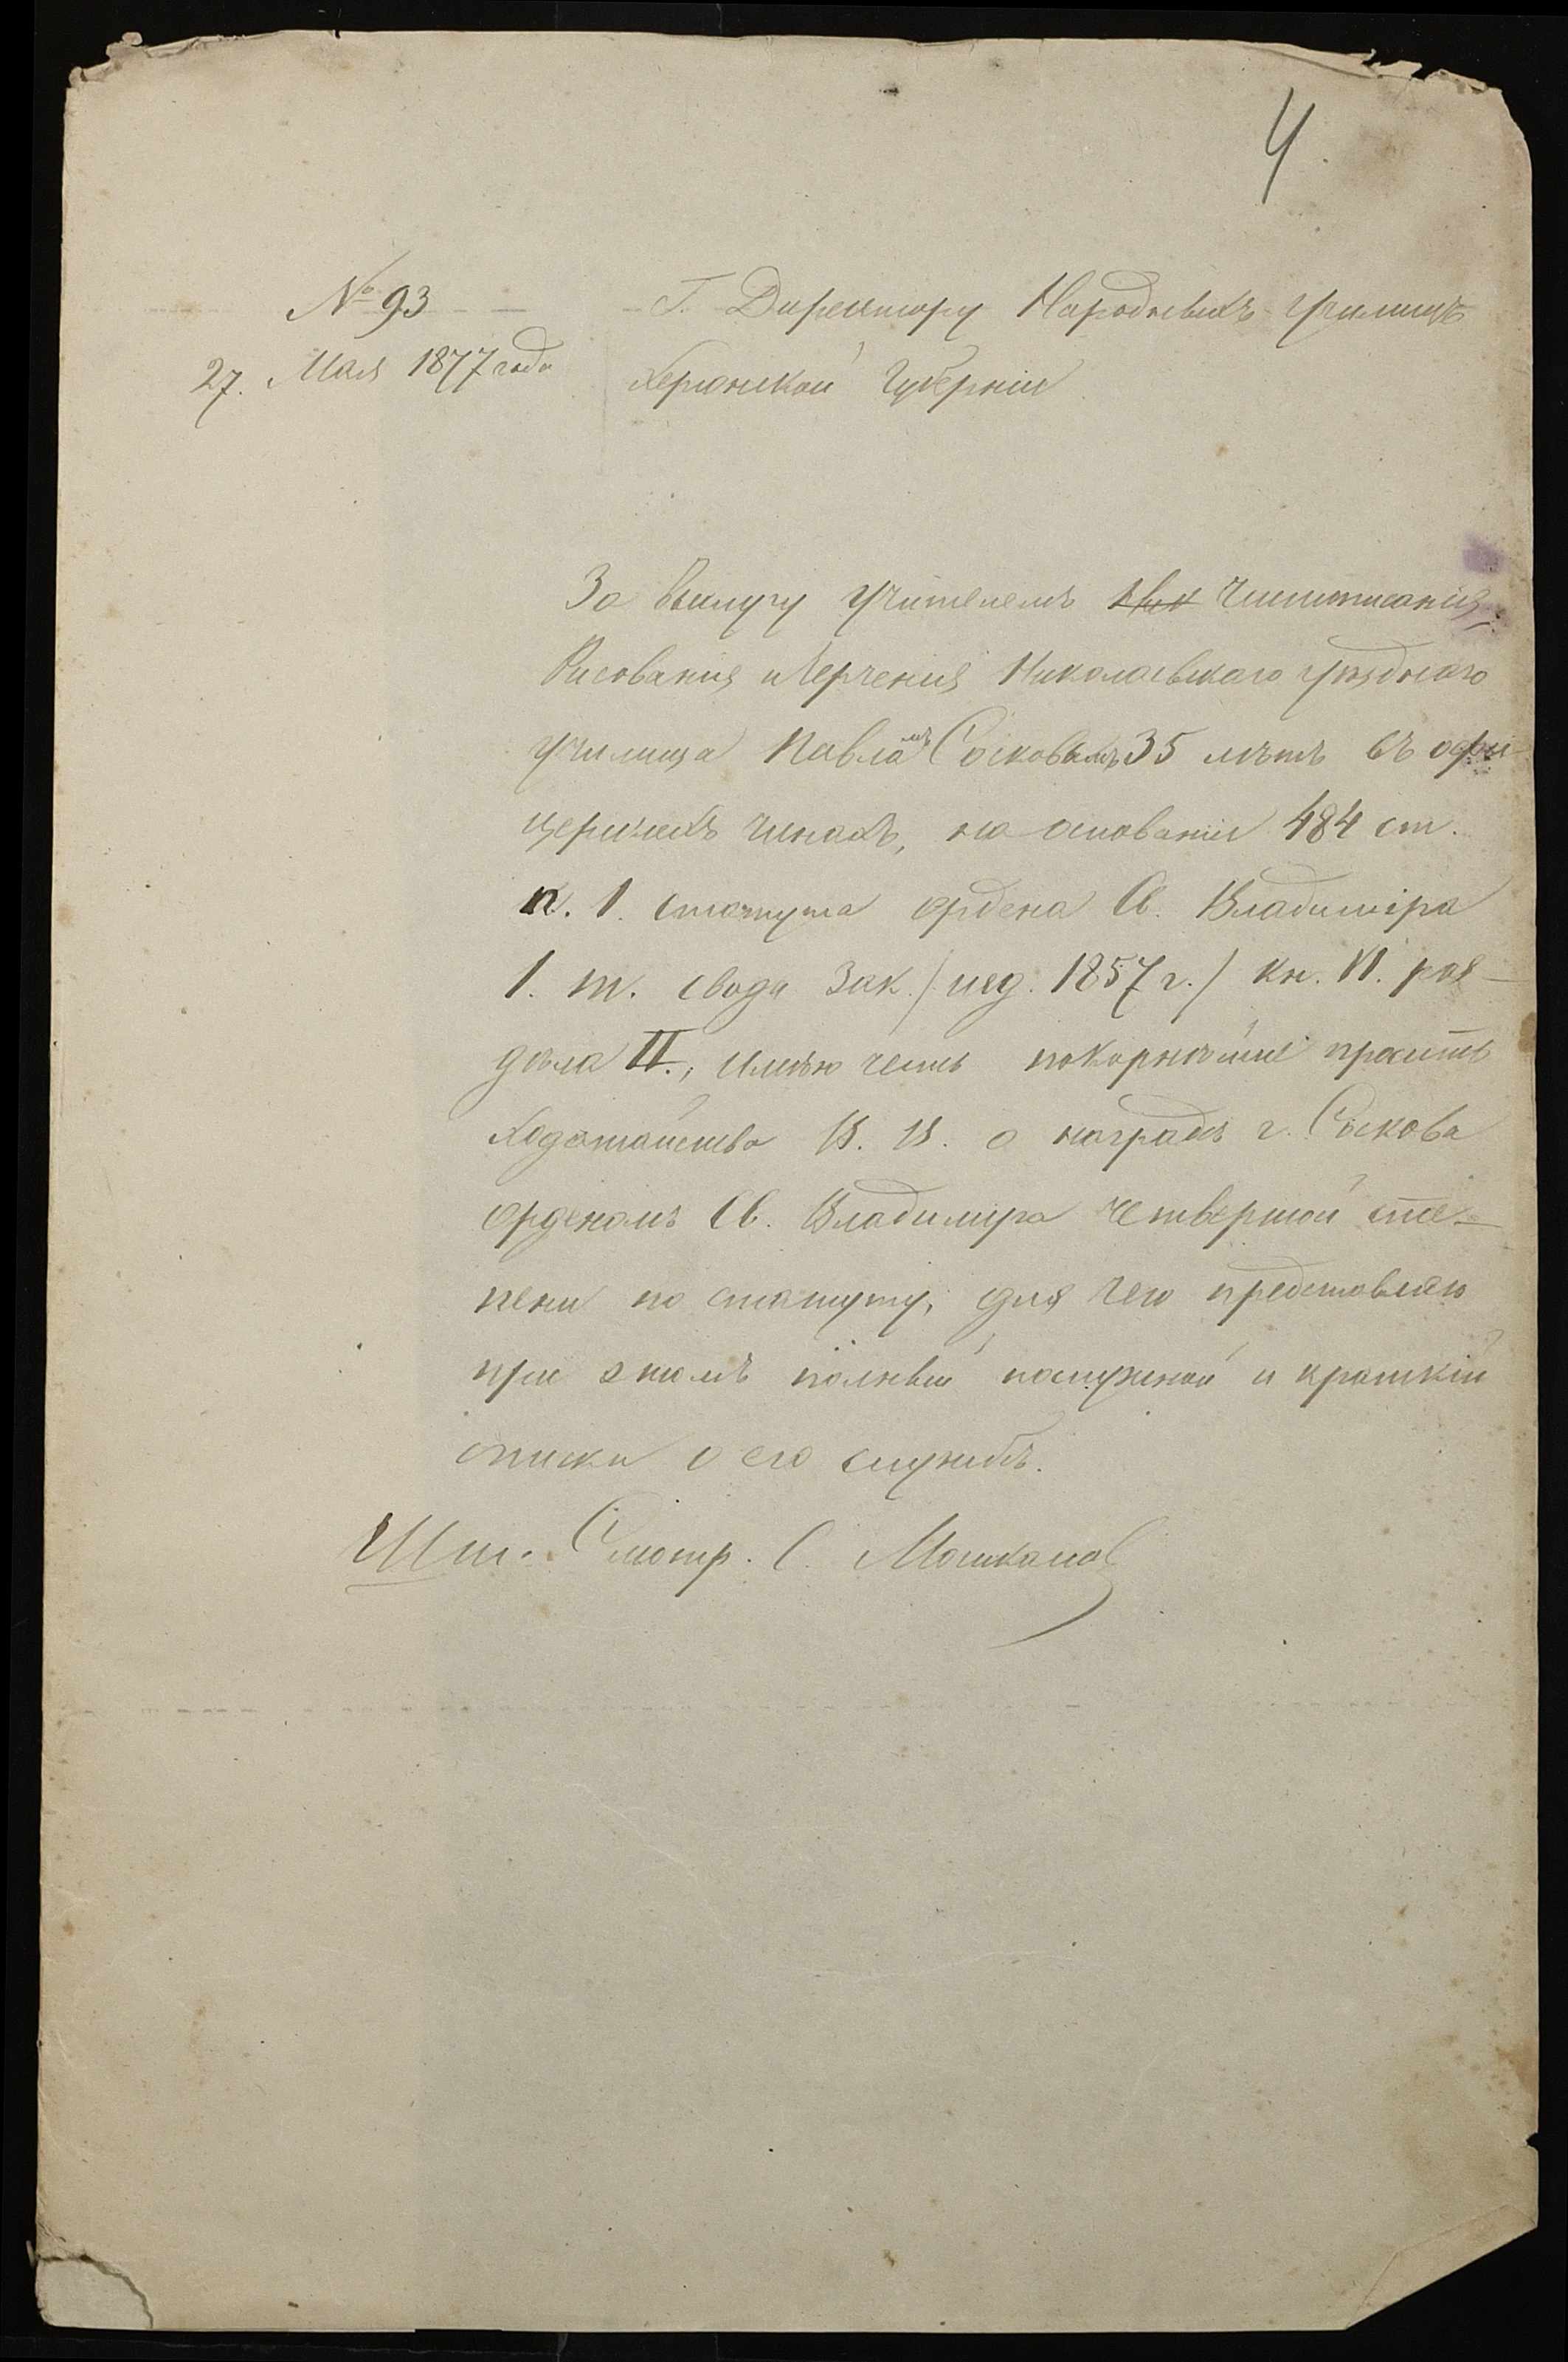 4.
№ 93
27. Мая 1877 года
Г. Директору Народныхъ Училищъ
Херсонской Губерніи
За выслугу Учителемъ Чистописанія,
Рисованія и Черченія Николаевскаго Уѣзднаго
Училища Павломъ Сосковымъ 35 лѣтъ въ офи
церскихъ чинахъ, на основаніи 484 ст.
п. 1. статута ордена Св. Владиміра
1. т. свода Зак. /изд. 1857 г./ кн. VI. раз-
дѣла II., имѣю честь покорнѣйше просить
ходатайства В. В. о наградѣ г. Соскова
орденомъ Св. Владиміра четвертой сте-
пени по статуту, для чего представляю
при этомъ полный послужной и краткій
списки о его службѣ.
Шт. Смотр. С.